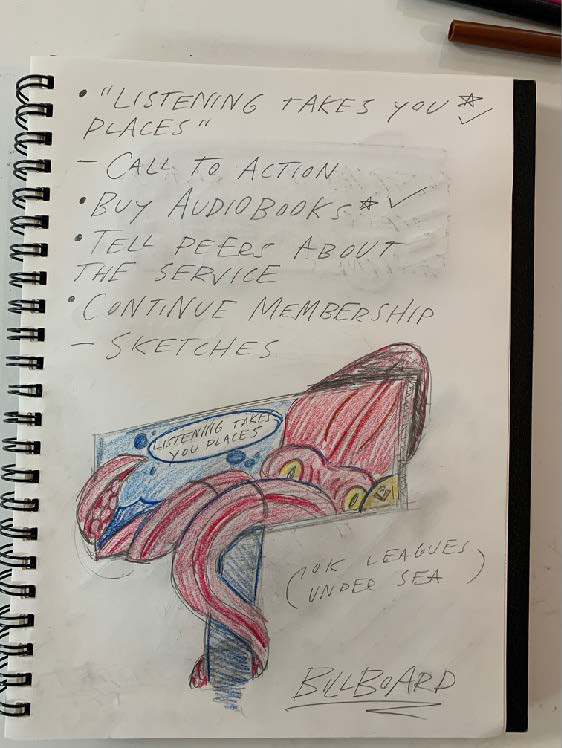 • "LISTENING TAKES YOU ☆ ✓
PLACES"
- CALL TO ACTION
• BUY AUDIOBOOKS ☆ ✓
• TELL PEERS ABOUT
THE SERVICE
• CONTINUE MEMBERSHIP
- SKETCHES
LISTENING TAKES
YOU PLACES
(10K LEAGUES
UNDER SEA)
BILLBOARD